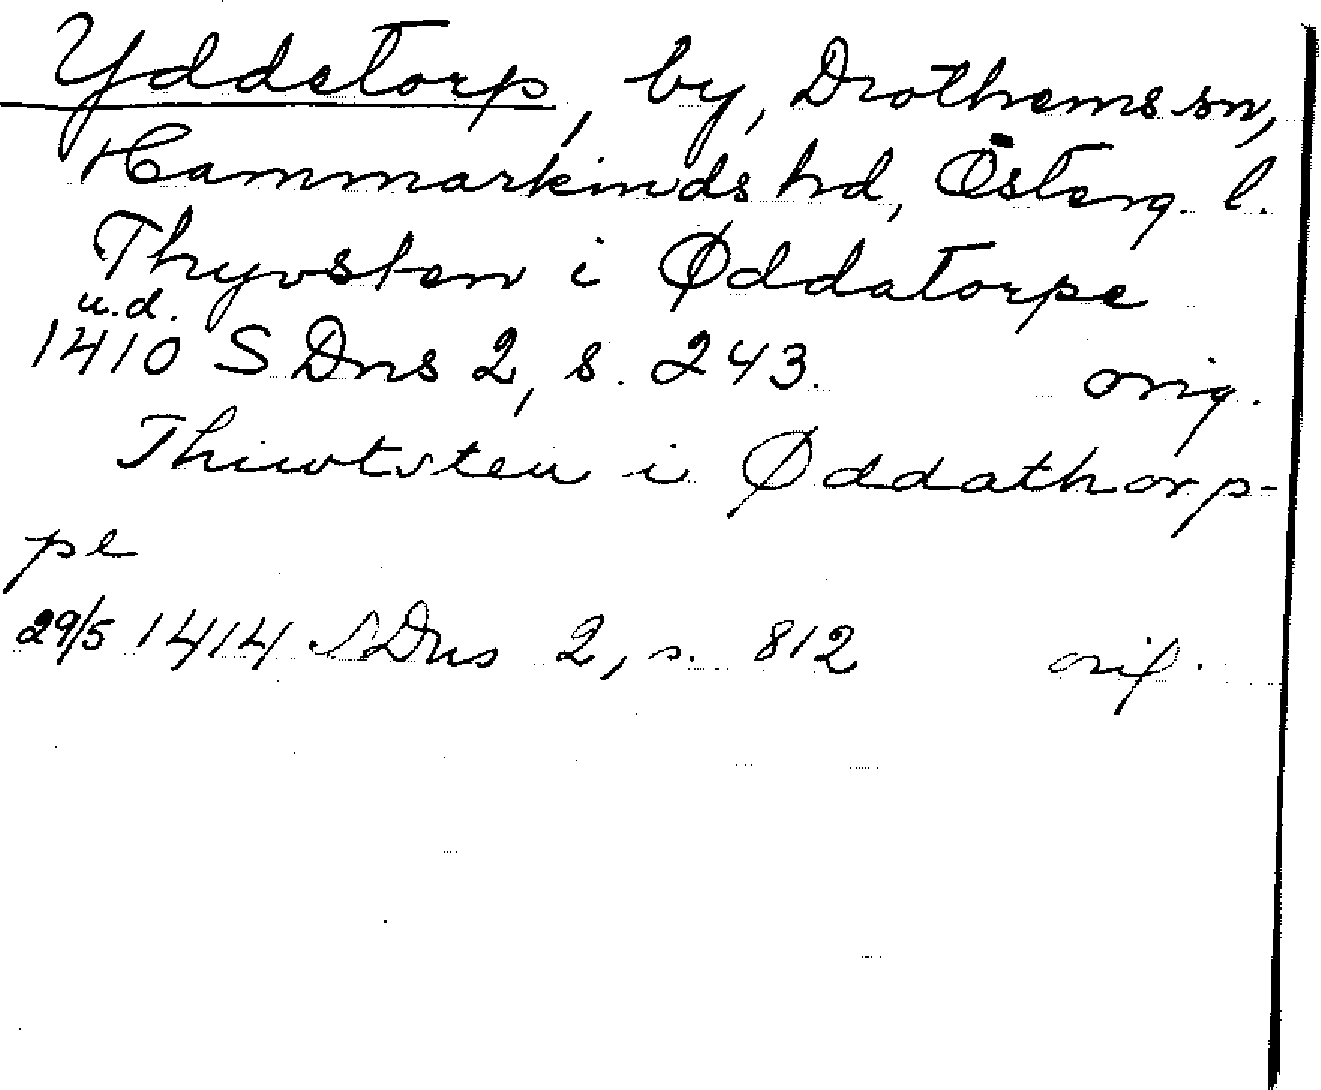 Yddetorp, by, Drothems sn,
Hammarkinds hd, Österg. l.
Thyvsten i Øddatorpe
u.d.
1410 SDns 2, s. 243. orig.
Thiwtsten i Øddathorp-
pe
29/5 1414 SDns 2, s. 812 orig.